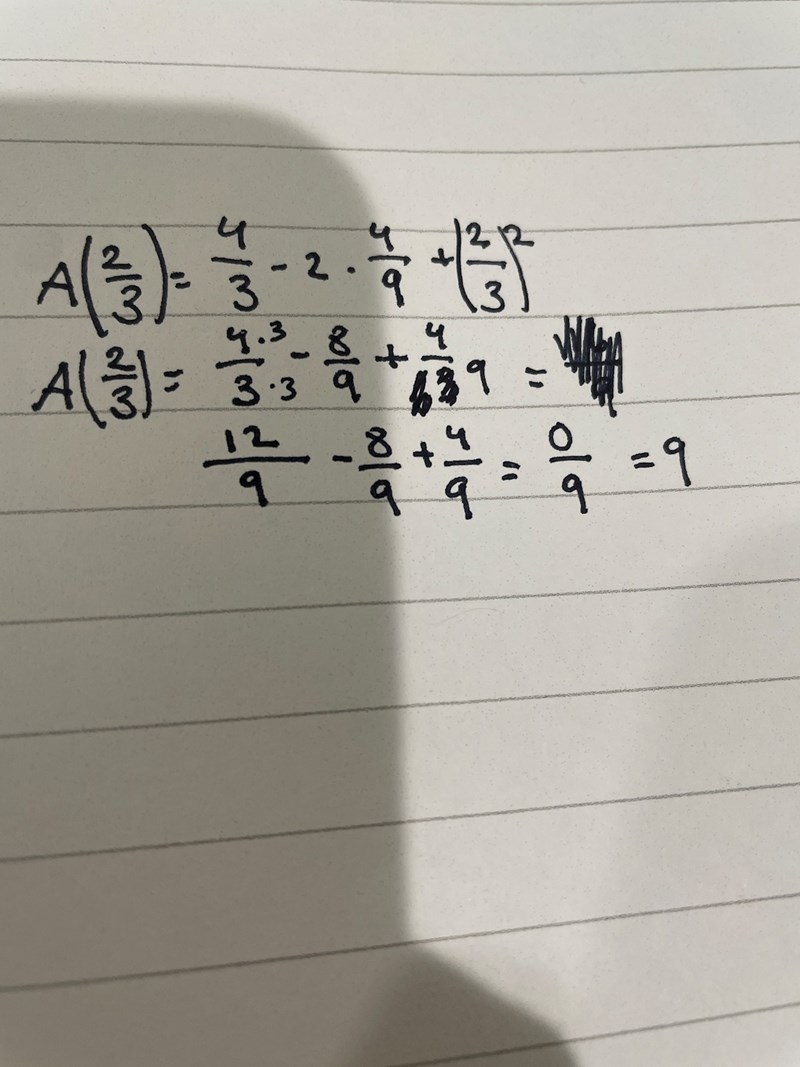 A(2/3) = 4/3 - 2 · 4/9 + (2/3)²
A(2/3) = 4·3/3·3 - 8/9 + 4/9 =
12/9 - 8/9 + 4/9 = 0/9 = 9